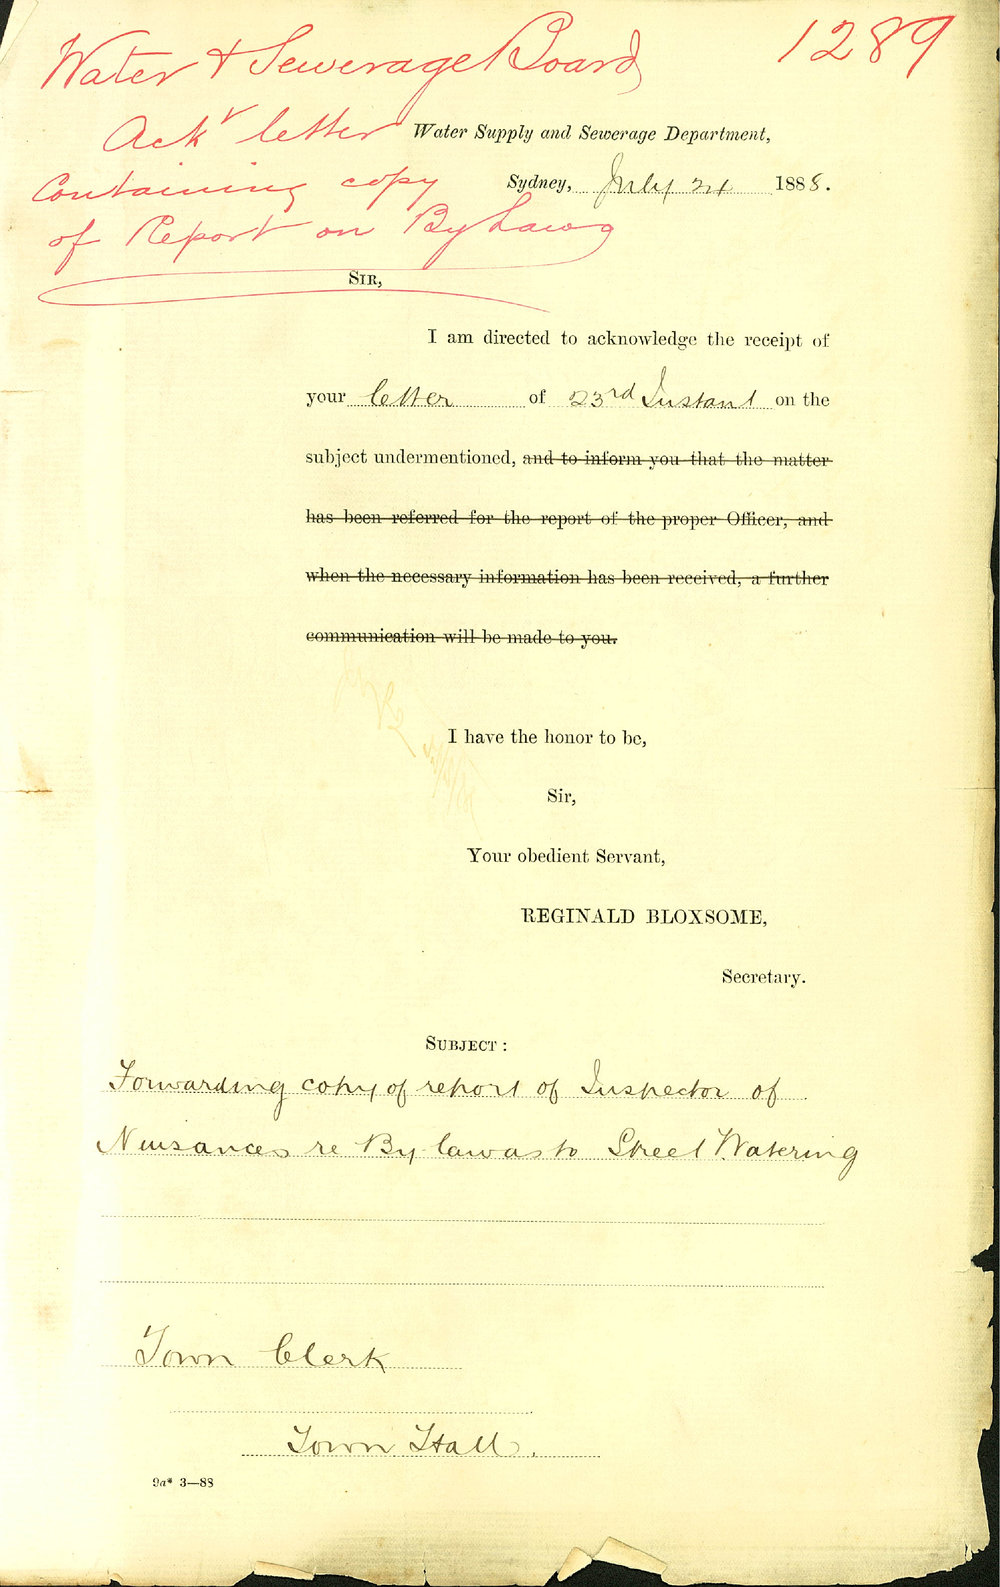 Water & Sewerage Board
1289
Ackg letter
Water Supply and Sewerage Department,
Containing copy
Sydney, July 24 1888.
of Report on By Laws
SIR,
I am directed to acknowledge the receipt of
your letter of 23rd Instant on the
subject undermentioned, and to inform you that the matter
has been referred for the report of the proper Officer, and
when the necessary information has been received, a further
communication will be made to you.
I have the honor to be,
Sir,
Your obedient Servant,
REGINALD BLOXSOME,
Secretary.
SUBJECT:
Forwarding copy of report of Inspector of
Nuisances re By laws as to Street Watering
Town Clerk
Town Hall.
9a* 3—88